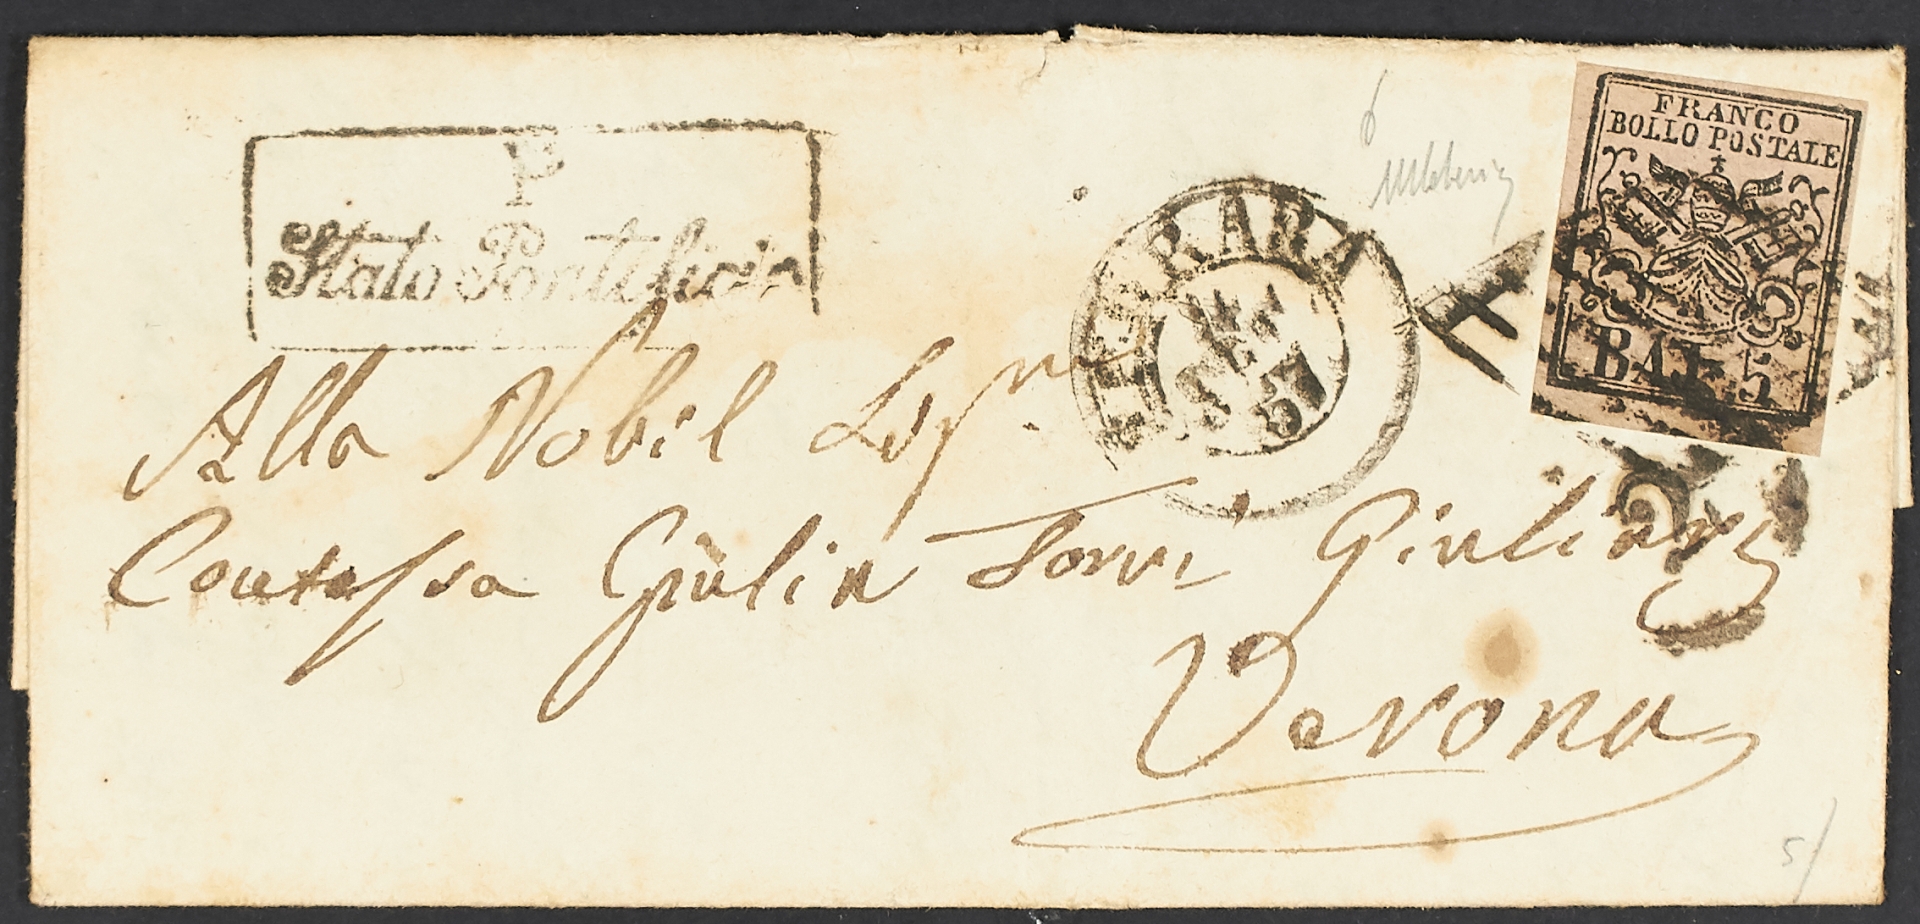 P
Stato Pontificio
FERRARA
57
FRANCO
BOLLO POSTALE
BAJ. 5
Alla Nobil Sigra
Contessa Giulia Torri Giuliari
Verona
5/